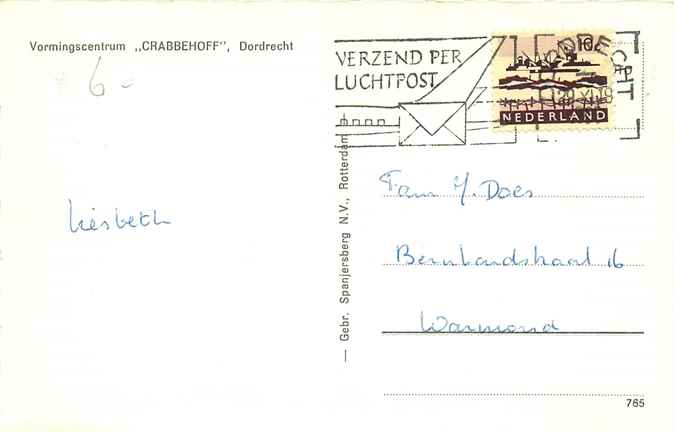 Vormingscentrum „CRABBEHOFF”, Dordrecht
6 -
VERZEND PER
LUCHTPOST
10c
DORDRECHT
NEDERLAND
Liesbeth
— Gebr. Spanjersberg N.V., Rotterdam
Fam Y. Does
16
Warmond
765